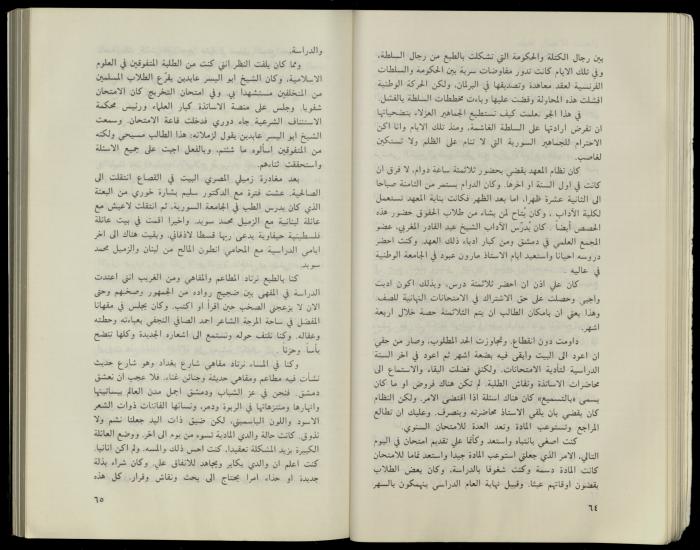 بين رجال الكتلة والحكومة التي تشكلت بالطبع من رجال السلطة،
وفي تلك الايام كانت تدور مفاوضات سرية بين الحكومة والسلطات
الفرنسية لعقد معاهدة وتصديقها في البرلمان، ولكن الحركة الوطنية
افشلت هذه المحاولة وقضت عليها وباءت مخططات السلطة بالفشل.
في هذا الجو تعلمت كيف تستطيع الجماهير العزلاء بتضحياتها
ان تفرض ارادتها على السلطة الغاشمة، ومنذ تلك الايام وانا اكن
الاحترام للجماهير السورية التي لا تنام على الظلم ولا تستكين
لغاصب.
كان نظام المعهد يقضي بحضور ثلاثمئة ساعة دوام، لا فرق ان
كانت في اول السنة او اخرها. وكان الدوام يستمر من الثامنة صباحا
الى الثانية عشرة ظهرا، اما بعد الظهر فكانت بناية المعهد تستعمل
لكلية الآداب، وكان يُتاح لمن يشاء من طلاب الحقوق حضور هذه
الحصص أيضاً. كان يُدرّس الآداب الشيخ عبد القادر المغربي، عضو
المجمع العلمي في دمشق ومن كبار ادباء ذلك العهد. وكنت احضر
دروسه احيانا واستعيد ايام الاستاذ مارون عبود في الجامعة الوطنية
في عاليه.
كان علي اذن ان احضر ثلاثمئة درس، وبذلك اكون اديت
واجبي وحصلت على حق الاشتراك في الامتحانات النهائية للصف.
وهذا يعني ان بامكان الطالب ان يتم الثلاثمئة حصة خلال اربعة
اشهر.
داومت دون انقطاع، وتجاوزت الحد المطلوب، وصار من حقي
ان اعود الى البيت وابقى فيه بضعة اشهر ثم اعود في اخر السنة
الدراسية لتأدية الامتحانات. ولكني فضلت البقاء والاستماع الى
محاضرات الاساتذة ونقاش الطلبة. لم تكن هناك فروض او ما كان
يسمى «بالتسميع» كان هناك اسئلة اذا اقتضى الامر. ولكن النظام
كان يقضي بان يلقي الاستاذ محاضرته وينصرف. وعليك ان تطالع
المراجع وتستوعب المادة وتعد العدة للامتحان السنوي.
كنت اصغي بانتباه واستعد وكأنما علي تقديم امتحان في اليوم
التالي، الامر الذي جعلني استوعب المادة جيدا واستعد تماما للامتحان
كانت المادة دسمة وكنت شغوفا بالدراسة، وكان بعض الطلاب
يقضون اوقاتهم عبثا. وقبيل نهاية العام الدراسي ينهمكون بالسهر
٦٤
والدراسة.
ومما كان يلفت النظر انني كنت من الطلبة المتفوقين في العلوم
الاسلامية، وكان الشيخ ابو اليسر عابدين يقرّع الطلاب المسلمين
من المتخلفين مستشهدا بي. وفي امتحان التخريج كان الامتحان
شفويا. وجلس على منصة الاساتذة كبار العلماء ورئيس محكمة
الاستئناف الشرعية جاء دوري فدخلت قاعة الامتحان. وسمعت
الشيخ ابو اليسر عابدين يقول لزملائه: هذا الطالب مسيحي ولكنه
من المتفوقين اسألوه ما شئتم. وبالفعل اجبت على جميع الاسئلة
واستحققت ثناءهم.
بعد مغادرة زميلي المصري البيت في القصاع انتقلت الى
الصالحية. عشت فترة مع الدكتور سليم بشارة خوري من البعنة
الذي كان يدرس الطب في الجامعة السورية، ثم انتقلت لاعيش مع
عائلة لبنانية مع الزميل محمد سويد. واخيرا اقمت في بيت عائلة
فلسطينية حيفاوية يدعى ربها قسطا لاذقاني. وبقيت هناك الى اخر
ايامي الدراسية مع المحامي انطون المالح من لبنان والزميل محمد
سويد.
كنا بالطبع نرتاد المطاعم والمقاهي ومن الغريب انني اعتدت
الدراسة في المقهى بين ضجيج رواده من الجمهور وصخبهم وحتى
الان لا يزعجني الصخب حين اقرأ او اكتب. وكان يجلس في مقهانا
المفضل في ساحة المرجة الشاعر احمد الصافي النجفي بعباءته وحطته
وعقاله. وكنا نلتف حوله ونستمع الى اشعاره الجديدة وكلها تنضح
بأساً وحزناً.
وكنا في المساء نرتاد مقاهي شارع بغداد وهو شارع حديث
نشأت فيه مطاعم ومقاهي حديثة وجنائن غناء. فلا عجب ان نعشق
دمشق. فنحن في عز الشباب ودمشق اجمل مدن العالم ببساتينها
وانهارها ومتنزهاتها في الربوة ودمر، ونسائها الفاتنات ذوات الشعر
الاسود واللون الياسميني. لكن ضيق ذات اليد جعلنا نشم ولا
نذوق. كانت حالة والدي المادية تسوء من يوم الى اخر. ووضع العائلة
الكبيرة يزيد المشكلة تعقيدا. كنت احس ذلك والمسه. ولم اكن انانيا.
كنت اعلم ان والدي يكابر ويجاهد للانفاق علي. وكان شراء بذلة
جديدة او حذاء امرا يحتاج الى بحث ونقاش وقرار. كل هذه
٦٥